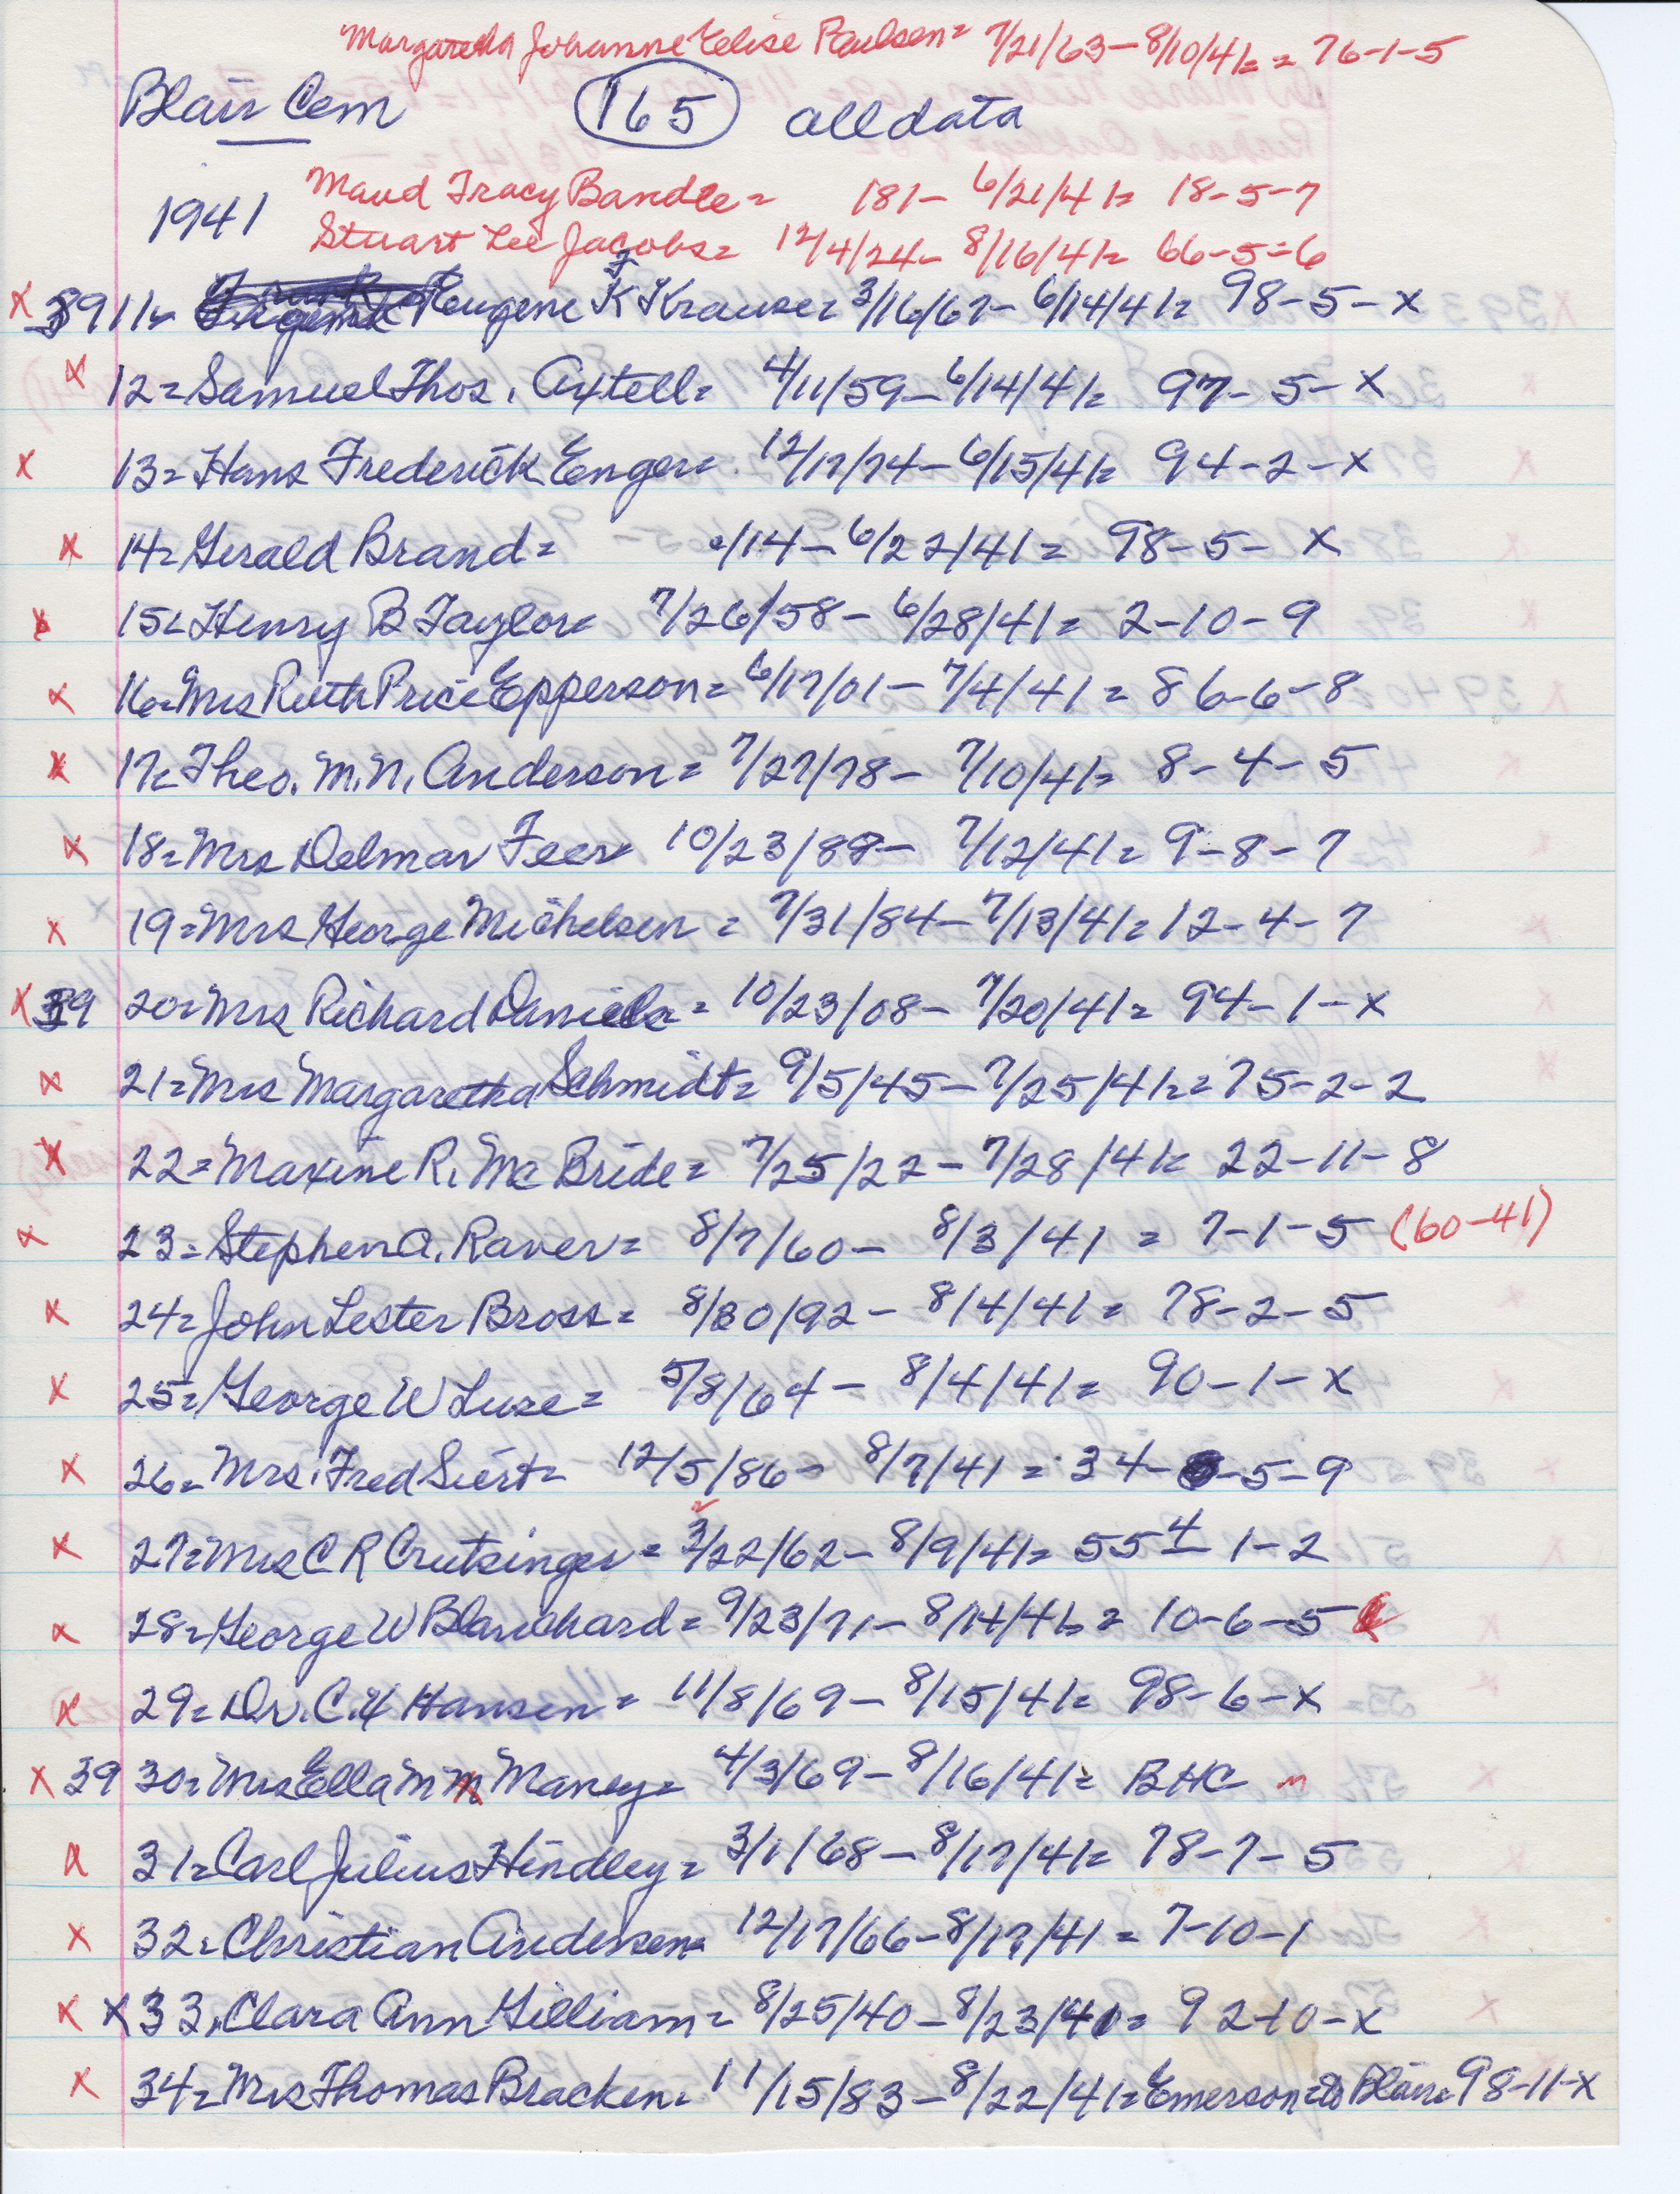 Margaretha Johanne Elise Paulsen= 7/21/63-8/10/41= = 76-1-5
Blair Cem 165 all data
Maud Tracy Bandle= 181- 6/21/41= 18-5-7
1941
Stuart Lee Jacobs= 12/4/24- 8/16/41= 66-5=6
x 3911= Eugene F Krause= 3/16/67- 6/14/41= 98-5-x
x 12= Samuel Thos. Axtell= 4/11/59-6/14/41= 97-5-x
x 13= Hans Frederick Enger= 12/17/74-6/15/41= 94-2-x
x 14= Gerald Brand= /14-6/22/41= 98-5-x
x 15= Henry B Taylor= 7/26/58-6/28/41= 2-10-9
x 16= Mrs Ruth Price Epperson= 6/17/01-7/4/41= 86-6-8
x 17= Theo. M.N. Anderson= 7/27/78- 7/10/41= 8-4-5
x 18= Mrs Delmar Feer 10/23/88- 7/12/41= 9-8-7
x 19= Mrs George Michelsen= 7/31/84-7/13/41= 12-4-7
x 39 20= Mrs Richard Daniels= 10/23/08- 7/20/41= 94-1-x
x 21= Mrs Margaretha Schmidt= 9/5/45-7/25/41= = 75-2-2
x 22= Maxine R. Mc Bride= 7/25/22-7/28/41= 22-11-8
x 23= Stephen A. Raver= 8/7/60- 8/3/41= 7-1-5 (60-41)
x 24= John Lester Bross= 8/30/92- 8/4/41= 78-2-5
x 25= George W Luse= 5/8/64- 8/4/41= 90-1-x
x 26= Mrs. Fred Siert= 12/5/86- 8/7/41= 34-5-9
x 27= Mrs C R Crutsinger= /22/62-8/9/41= 554-1-2
x 28= George W Blanchard= 9/23/71-8/14/41= 10-6-5
x 29= Dr. C.H Hansen= 11/8/69-8/15/41= 98-6-x
x 39 30= Mrs Ella M Maney= 4/3/69-8/16/41= BHC m
x 31= Carl Julius Hindley= 3/1/68-8/17/41= 78-7-5
x 32= Christian Andersen= 12/17/66-8/17/41= 7-10-1
x x 33, Clara Ann Gilliam= 8/25/40-8/23/41= 92-10-x
x 34= Mrs Thomas Bracken= 11/15/83-8/22/41= Emerson Blair= 98-11-x